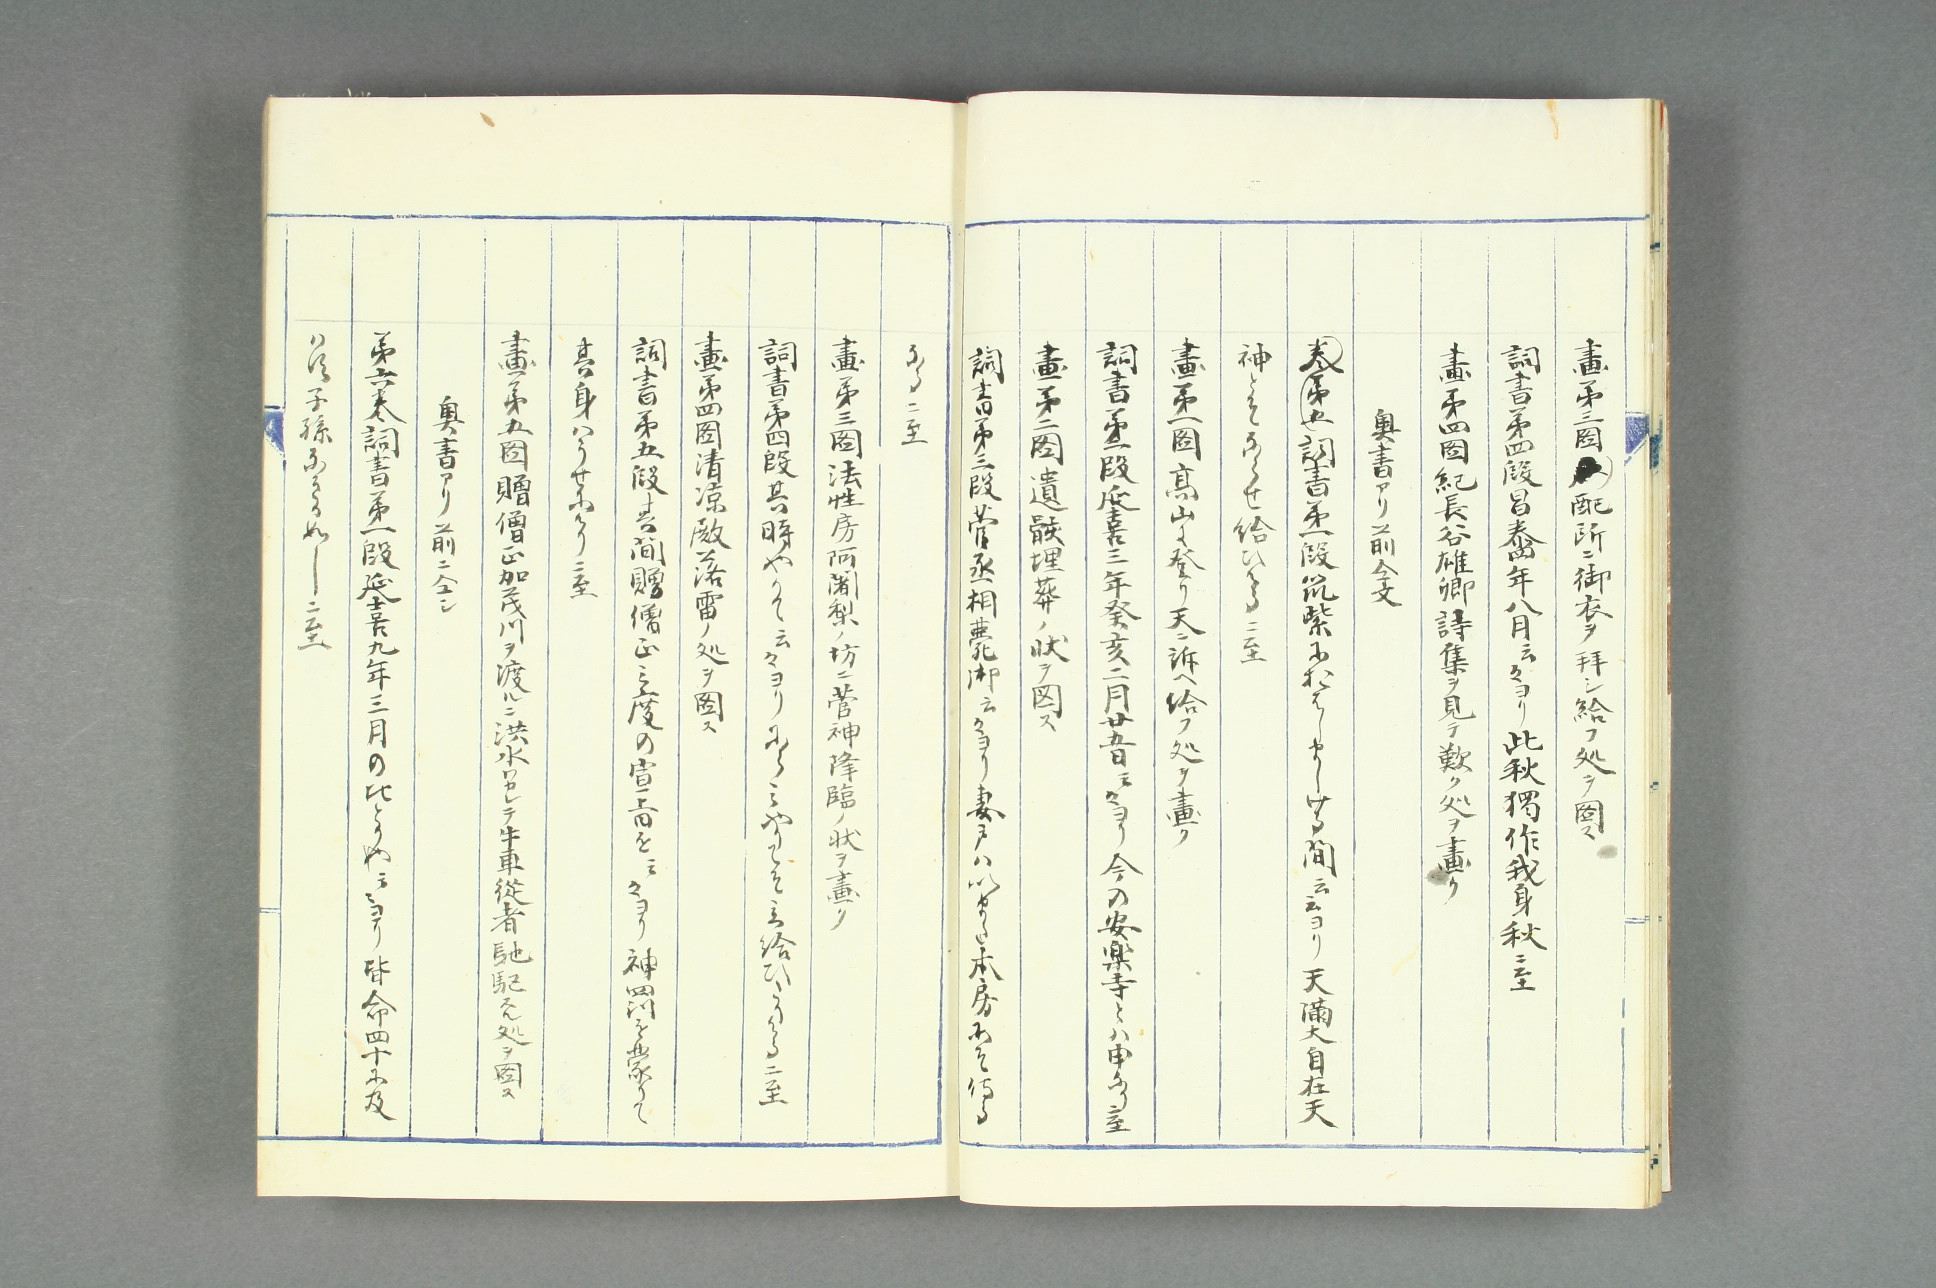 畫第三圖配所ニ御衣ヲ拜シ給フ処ヲ圖ス
詞書第四段昌泰四年八月云々ヨリ此秋獨作我身秋ニ至
畫第四圖紀長谷雄卿詩集ヲ見テ歎ク処ヲ畫ク
奥書アリ前ニ仝文
卷第五詞書第一段筑紫におはしましける間云云ヨリ天滿大自在天
神とそならせ給ひける ニ至
畫第一圖高山ニ登リ天ニ訴ヘ給フ処ヲ畫ク
詞書第二段延喜三年癸亥二月廿五日云々ヨリ今の安楽寺とハ申なり ニ至
畫第二圖遺骸埋葬ノ状ヲ図ス
詞書第三段菅丞相薨御云々ヨリ妻戸ハ本房にそ侍る
なる ニ至
畫第三圖法性房阿闍梨ノ坊ニ菅神降臨ノ状ヲ畫ク
詞書第四段其時やかて云々ヨリ給ひたりける ニ至
畫第四圖清凉殿落雷ノ処ヲ圖ス
詞書第五段其間贈僧正三度の宣旨を云々ヨリ神罰を蒙りて
其身ハうせにけり ニ至
畫第五圖贈僧正加茂川ヲ渡ルニ洪水シテ牛車從者馳駈スル処ヲ圖ス
奥書アリ前ニ仝シ
第六卷詞書第一段延喜九年三月の比とかや云々ヨリ皆命四十に及
ハす子孫なきか如し ニ至